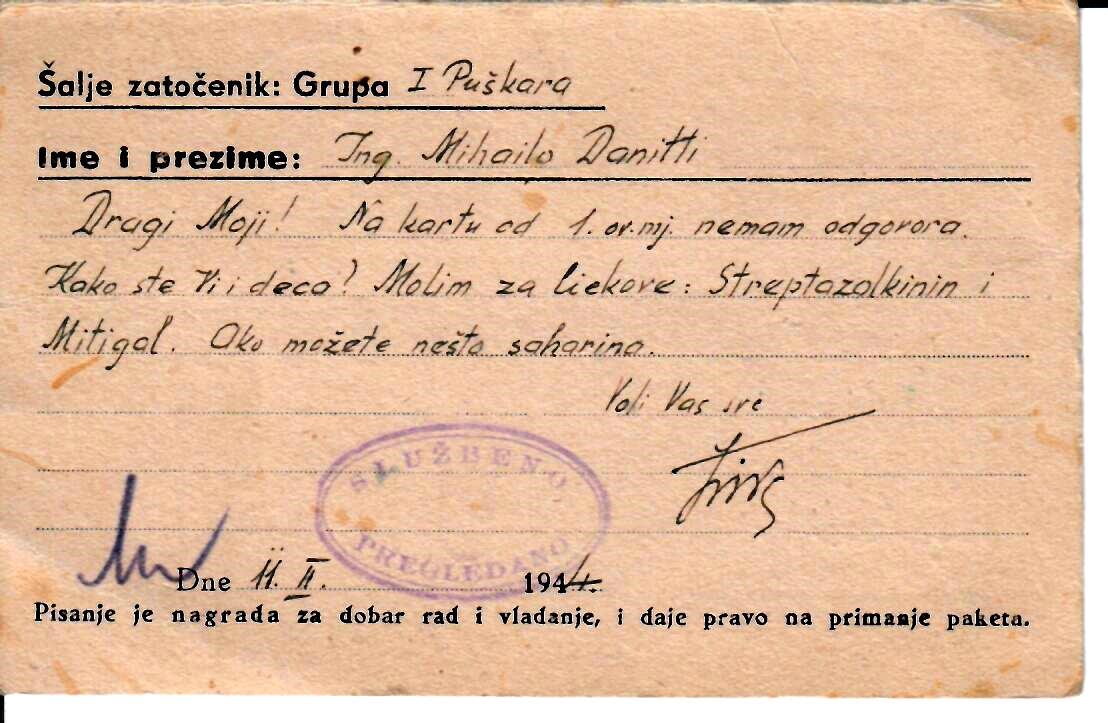 Šalje zatočenik: Grupa I Puškara
Ime i prezime: Ing. Mihailo Danitti
Dragi Moji! Na kartu od 1. ov.mj. nemam odgovora.
Kako ste Vi i deca? Molim za liekove: Streptazolkinin i
Mitigal. Ako možete nešto saharina.
Voli Vas sve
SLUŽBENO
PREGLEDANO
Dne 11. II. 1944.
Pisanje je nagrada za dobar rad i vladanje, i daje pravo na primanje paketa.